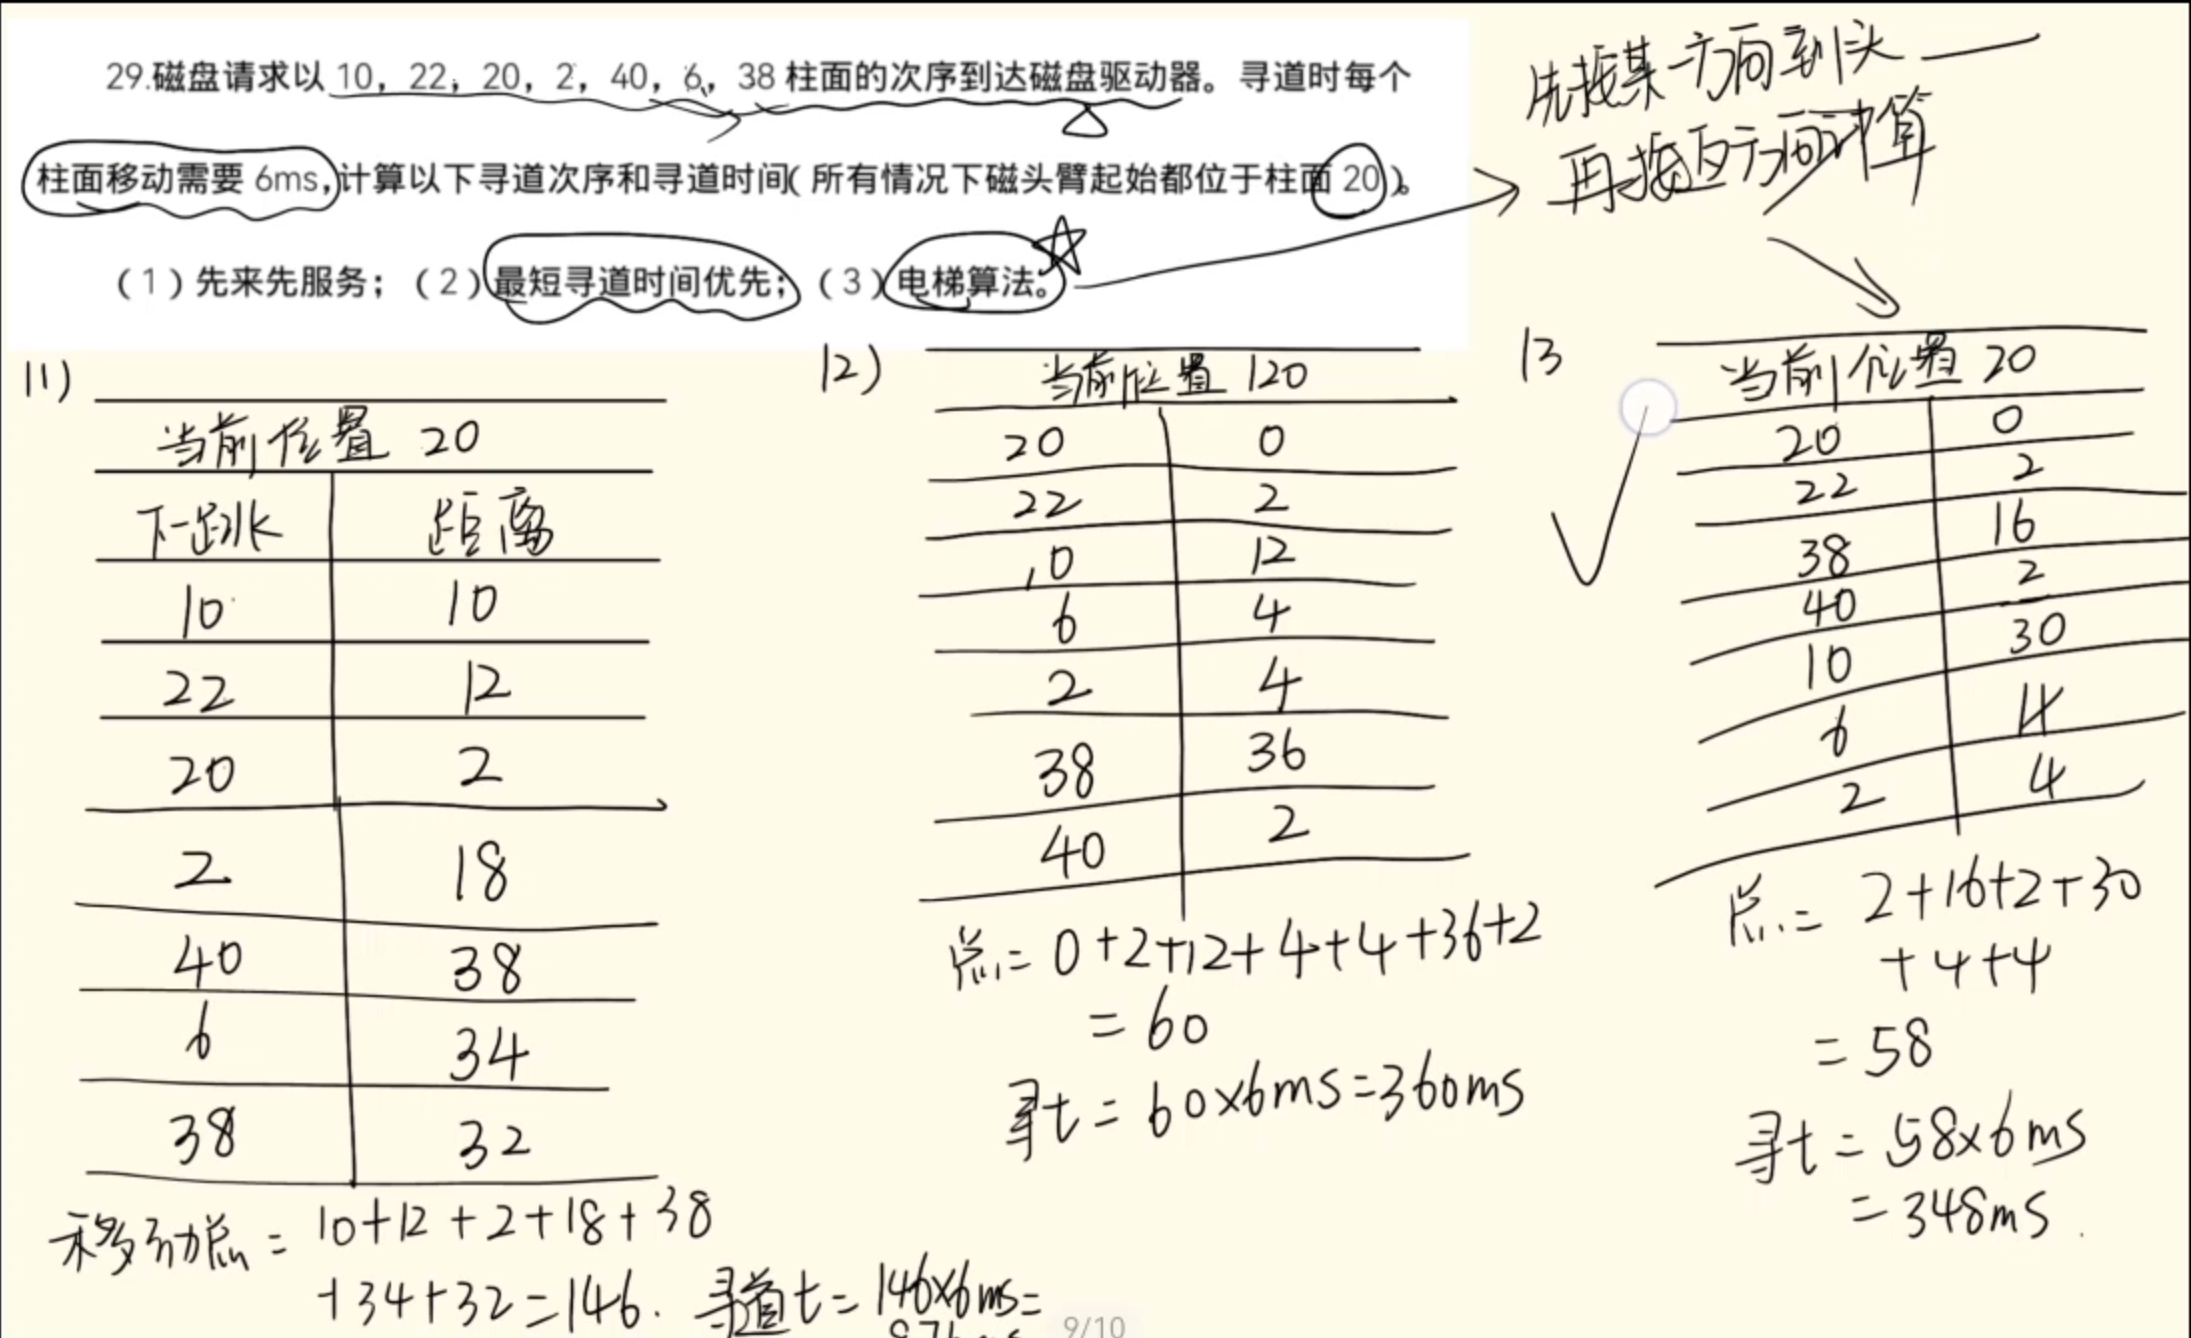 29.磁盘请求以 10，22，20，2，40，6，38 柱面的次序到达磁盘驱动器。寻道时每个
柱面移动需要 6ms,计算以下寻道次序和寻道时间(所有情况下磁头臂起始都位于柱面 20)。
（1）先来先服务；（2）最短寻道时间优先；（3）电梯算法。
先按某一方向到头
再按反方向计算
(1)
当前位置 20
下一跳 距离
10 10
22 12
20 2
2 18
40 38
6 34
38 32
移动总 = 10+12+2+18+38
+34+32=146. 寻道t=146×6ms=
(2)
当前位置 120
20 0
22 2
10 12
6 4
2 4
38 36
40 2
总=0+2+12+4+4+36+2
=60
寻t=60×6ms=360ms
(3
当前位置 20
20 0
22 2
38 16
40 2
10 30
6 4
2 4
总= 2+16+2+30
+4+4
=58
寻t=58×6ms
=348ms.
9/10